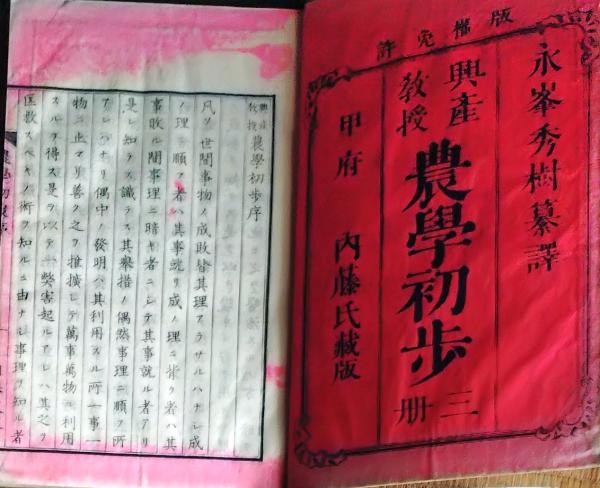 版權免許
永峯秀樹纂譯
興產
教授
農學初步
三册
甲府 內藤氏藏版
興產
教授
農學初步序
凡ソ世間事物ノ成敗皆其理アラサルハナシ成
ノ理ニ順フ者ハ其事就リ成ノ理ニ逆フ者ハ其
事敗ル間事理ニ暗キ者ニシテ其事就ル者アリ
是レ知ラス識ラス其舉措ノ偶然事理ニ順フ所
アレハナリ偶中ノ發明ハ其利用スル所一事一
物ニ止マリ善ク之ヲ推擴シテ萬事萬物ニ利用
スルヲ得ス是ヲ以テ一弊害起ルアレハ其之ヲ
匡救スヘキノ術ヲ知ルニ由ナシ事理ヲ知ル者